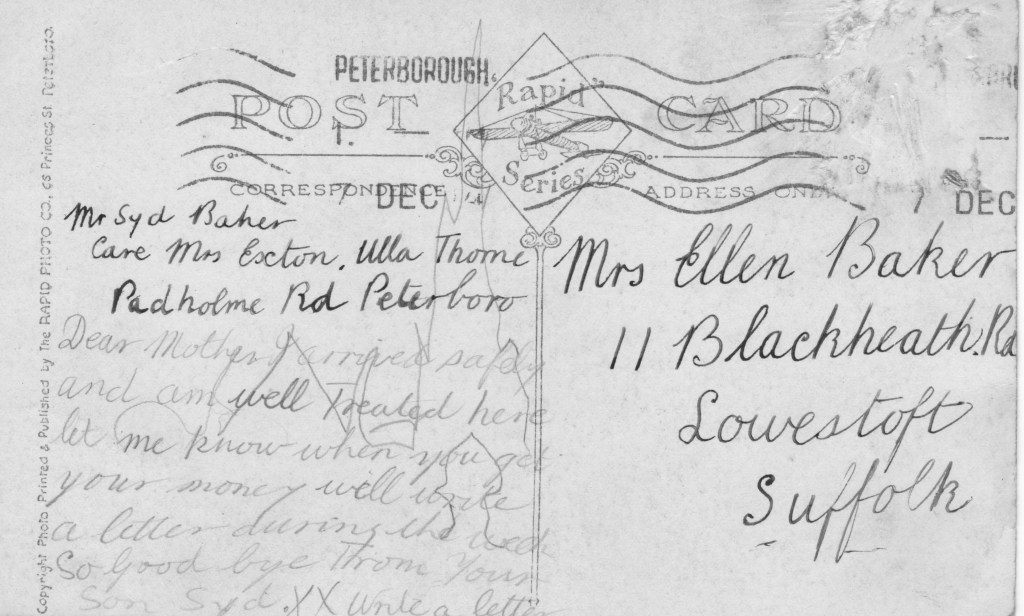 PETERBOROUGH.
POST CARD
Rapid
Series
1.
CORRESPONDENCE
ADDRESS ONLY
7 DEC
7 DEC
Mr Syd Baker
Care Mrs Exton, Ulla Thorne
Padholme Rd Peterboro
Dear Mother I arrived safely
and am well Treated here
let me know when you get
your money will write
a letter during the week
So Good bye From Your
Son Syd. XX write a letter
Mrs Ellen Baker
11 Blackheath. Rd
Lowestoft
Suffolk
Copyright Photo Printed & Published by The RAPID PHOTO CO., 65 Princes St. Peterboro.